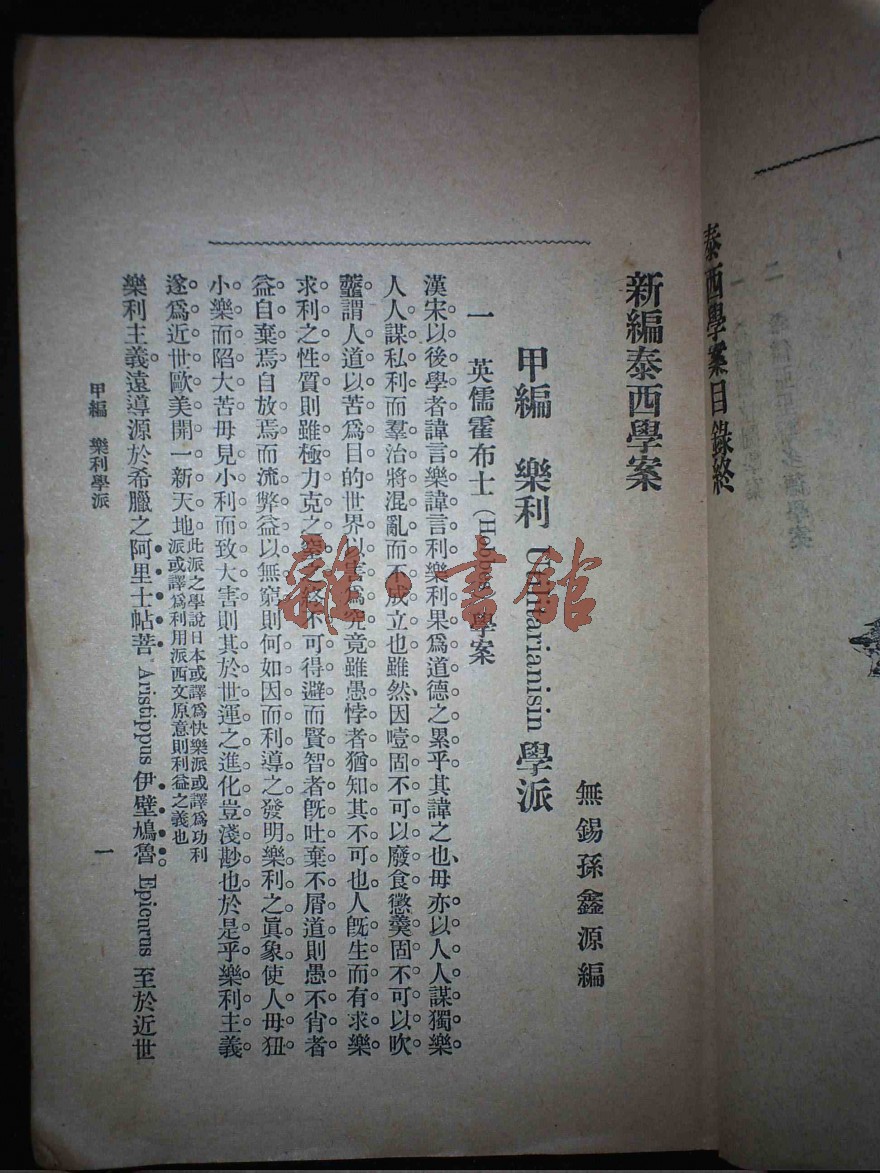 泰西學案目錄終
新編泰西學案
無錫孫鑫源編
甲編 樂利 Utilitarianisin 學派
一 英儒霍布士（Hobbes）學案
漢宋以後學者諱言樂諱言利樂利果爲道德之累乎其諱之也毋亦以人人謀獨樂
人人謀私利而羣治將混亂而不成立也雖然因噎固不可以廢食懲羹固不可以吹
虀謂人道以苦爲目的世界以害爲究竟雖愚悖者猶知其不可也人旣生而有求樂
求利之性質則雖極力克之窒之終不可得避而賢智者旣吐棄不屑道則愚不肖者
益自棄焉自放焉而流弊益以無窮則何如因而利導之發明樂利之眞象使人毋狃
小樂而陷大苦毋見小利而致大害則其於世運之進化豈淺尠也於是乎樂利主義
遂爲近世歐美開一新天地此派之學說日本或譯爲快樂派或譯爲功利
派或譯爲利用派西文原意則利益之義也
樂利主義遠導源於希臘之阿里士帖菩 Aristippus 伊壁鳩魯 Epicurus 至於近世
甲編 樂利學派
一
雜·書館